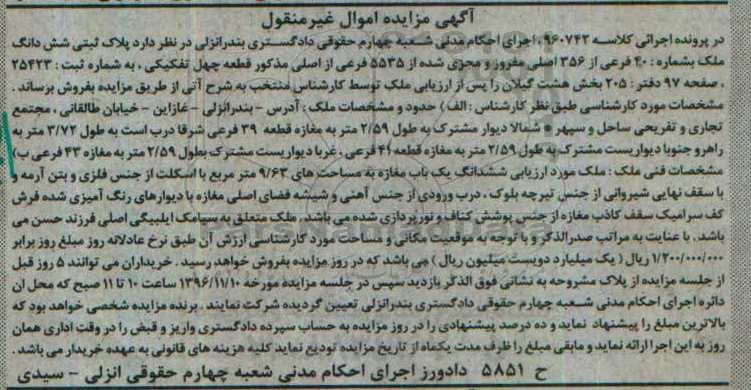 آگهی مزایده اموال غیرمنقول
در پرونده اجرائی کلاسه ۹۶۰۷۴۲، اجرای احکام مدنی شعبه چهارم حقوقی دادگستری بندرانزلی در نظر دارد پلاک ثبتی شش دانگ
ملک بشماره : ۴۰ فرعی از ۳۵۶ اصلی مفروز و مجزی شده از ۵۵۳۵ فرعی از اصلی مذکور قطعه چهل تفکیکی ، به شماره ثبت : ۲۵۴۲۳
، صفحه ۹۷ دفتر : ۲۰۵ بخش هفت گیلان را پس از ارزیابی ملک توسط کارشناس منتخب به شرح آتی از طریق مزایده بفروش برساند .
مشخصات مورد کارشناسی طبق نظر کارشناس : الف) حدود و مشخصات ملک : آدرس - بندرانزلی - غازیان - خیابان طالقانی ، مجتمع
تجاری و تفریحی ساحل و سپهر * شمالا دیوار مشترک به طول ۲/۵۹ متر به مغازه قطعه ۳۹ فرعی شرقا درب است به طول ۳/۷۲ متر به
راهرو جنوبا دیواریست مشترک به طول ۲/۵۹ متر به مغازه قطعه ۴۱ فرعی ، غربا دیواریست مشترک بطول ۲/۵۹ متر به مغازه ۴۳ فرعی ب)
مشخصات فنی ملک : ملک مورد ارزیابی ششدانگ یک باب مغازه به مساحت های ۹/۶۳ متر مربع با اسکلت از جنس فلزی و بتن آرمه و
با سقف نهایی شیروانی از جنس تیرچه بلوک ، درب ورودی از جنس آهنی و شیشه فضای اصلی مغازه با دیوارهای رنگ آمیزی شده فرش
کف سرامیک سقف کاذب مغازه از جنس پوشش کناف و نورپردازی شده می باشد. ملک متعلق به سیامک ایلبیگی اصلی فرزند حسن می
باشد . با عنایت به مراتب صدرالذکر و با توجه به موقعیت مکانی و مساحت مورد کارشناسی ارزش آن طبق نرخ عادلانه روز مبلغ روز برابر
۱/۲۰۰/۰۰۰/۰۰۰ ریال ( یک میلیارد دویست میلیون ریال ) می باشد که در روز مزایده بفروش خواهد رسید . خریداران می توانند ۵ روز قبل
از جلسه مزایده از پلاک مشروحه به نشانی فوق الذکر بازدید سپس در جلسه مزایده مورخه ۱۳۹۶/۱۱/۱۰ ساعت ۱۰ تا ۱۱ صبح که محل ان
دائره اجرای احکام مدنی شعبه چهارم حقوقی دادگستری بندرانزلی تعیین گردیده شرکت نمایند . برنده مزایده شخصی خواهد بود که
بالاترین مبلغ را پیشنهاد نماید و ده درصد پیشنهادی را در روز مزایده به حساب سپرده دادگستری واریز و قبض را در وقت اداری همان
روز به این اجرا ارائه نماید و مابقی مبلغ را ظرف مدت یکماه از تاریخ مزایده تودیع نماید کلیه هزینه های قانونی به عهده خریدار می باشد .
ح ۵۸۵۱ دادورز اجرای احکام مدنی شعبه چهارم حقوقی انزلی - سیدی